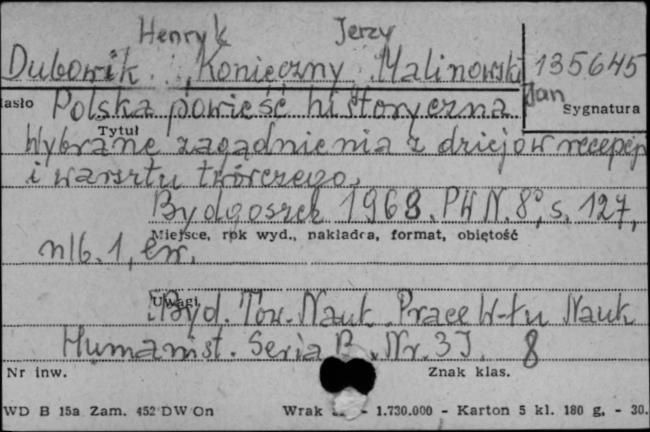 Henryk Jerzy
Dubowik, Konieczny, Malinowski 135645
Jan
asło Polska powieść historyczna. Sygnatura
Tytuł
Wybrane zagadnienia z dziejów recepcji
i warsztu twórczego.
Bydgoszcz 1968. PWN. 8°, s. 127,
Miejsce, rok wyd., nakładca, format, objętość
nlb. 1, err.
Uwagi
Byd. Tow. Nauk. Prace W-łu Nauk
Humanist. Seria B. Nr. 3]. 8
Nr inw. Znak klas.
WD B 15a Zam. 452 DW On Wrak - 1.730.000 - Karton 5 kl. 180 g. - 30.